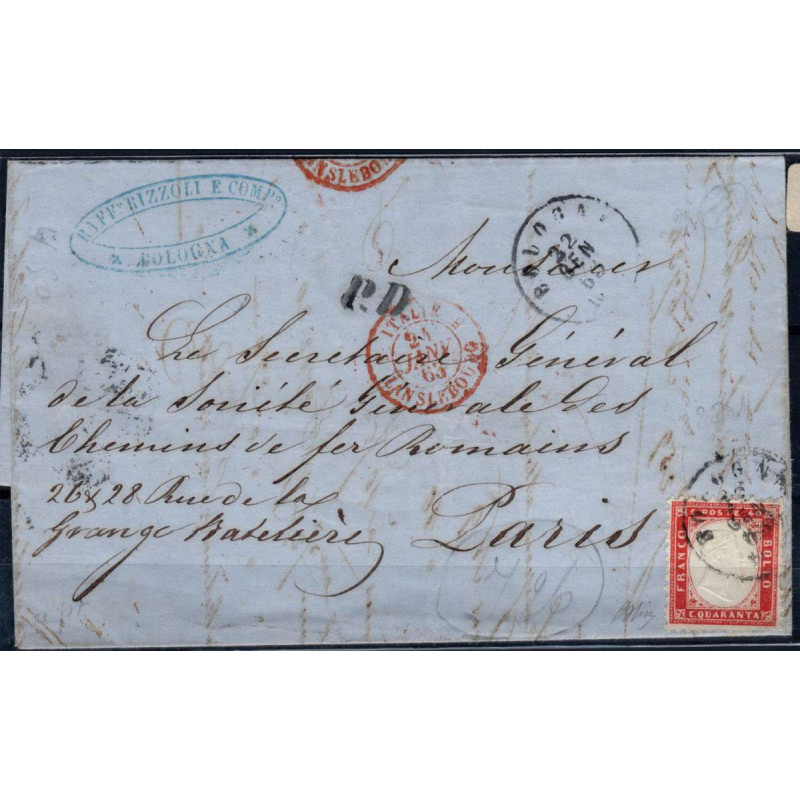 RAFF.e RIZZOLI E COMP.o
BOLOGNA
NSLEBO
BOLOGNA
22
GEN
Monsieur
P.D
ITALIE
24
JANV
63
LANSLEBOURG
Le Secretaire Général
de la Société Générale des
Chemins de fer Romains
26 & 28 Rue de la
Grange Batelière Paris
BOLOGNA
FRANCO
POSTE
BOLLO
C. QUARANTA
726